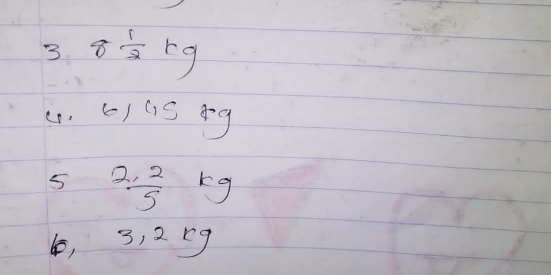 3 8 1/2 kg
4. 6,45 kg
5 2,2/5 kg
6, 3,2 kg